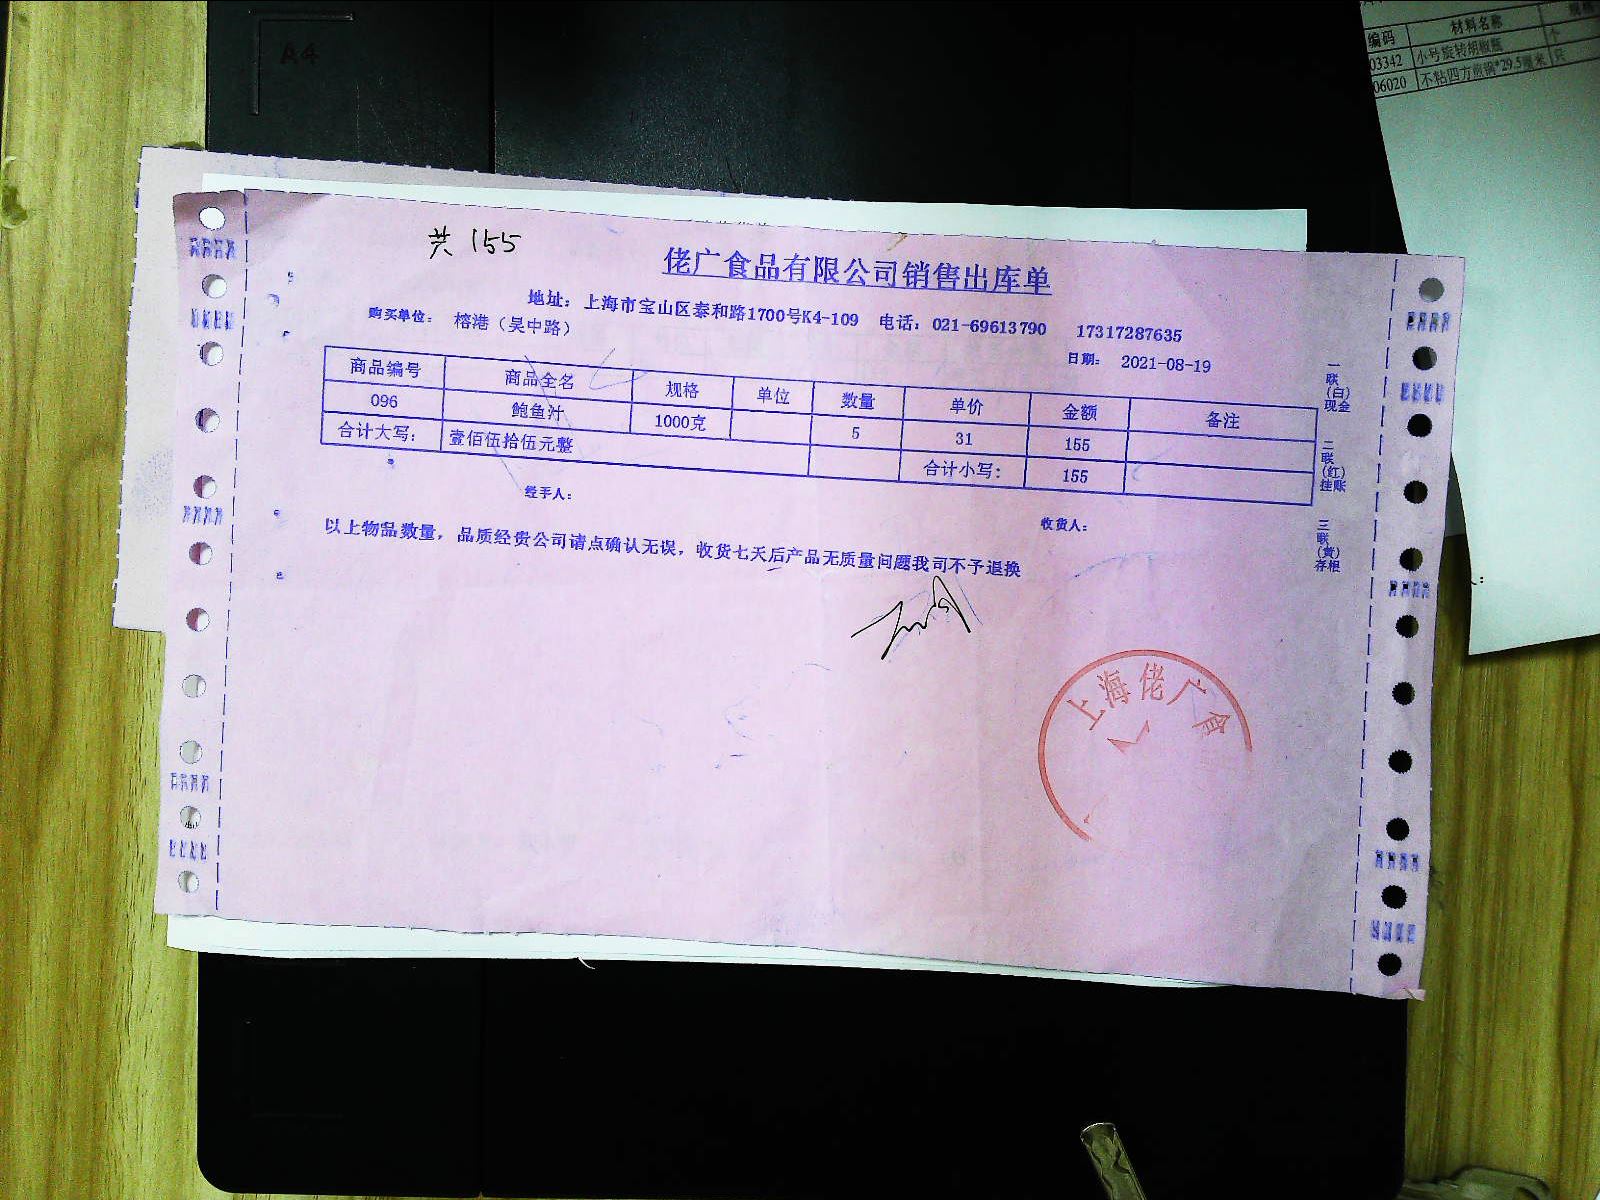 A4
编码 材料名称 规格
03342 小号旋转胡椒瓶 个
06020 不粘四方煎锅*29.5厘米 只
共 155
佬广食品有限公司销售出库单
地址: 上海市宝山区泰和路1700号K4-109 电话: 021-69613790 17317287635
购买单位: 榕港（吴中路）
日期: 2021-08-19
商品编号 商品全名 规格 单位 数量 单价 金额 备注
096 鲍鱼汁 1000克 5 31 155
合计大写: 壹佰伍拾伍元整 合计小写: 155
经手人:
收货人:
以上物品数量，品质经贵公司请点确认无误，收货七天后产品无质量问题我司不予退换
一联（白）现金
二联（红）挂账
三联（黄）存根
上海佬广食